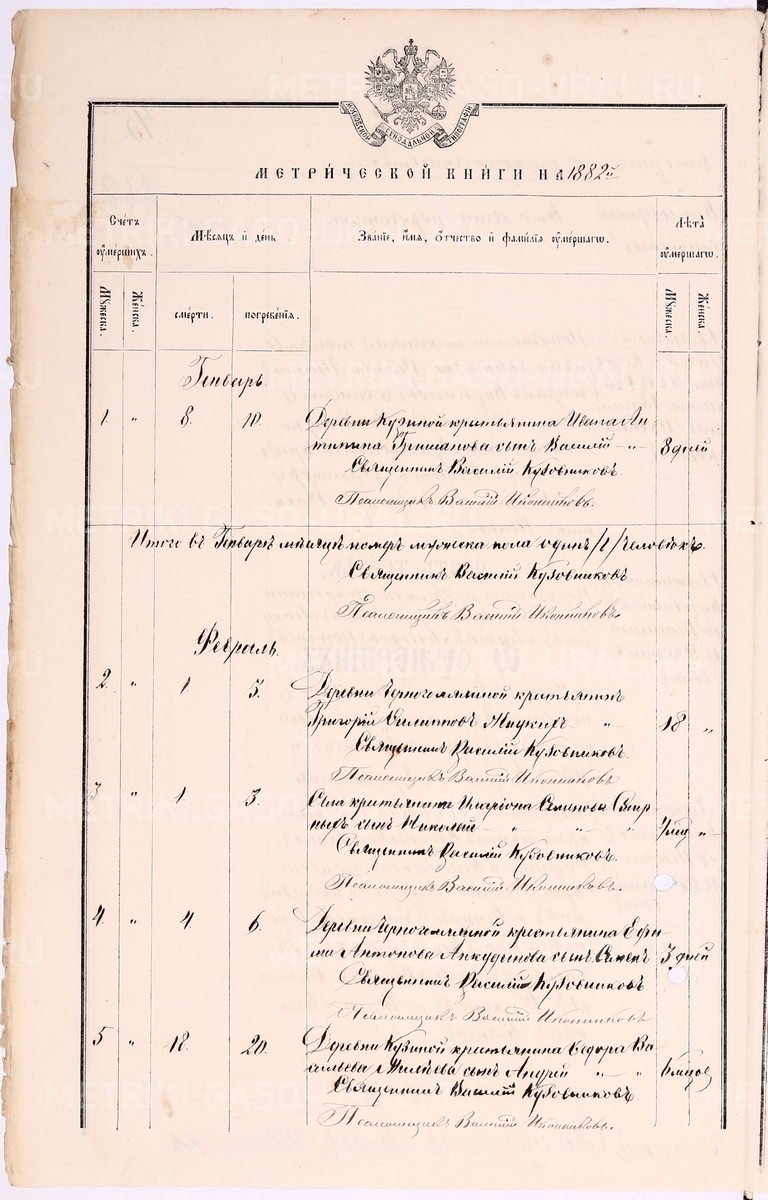 МОСКОВСКОЙ СѴНОДАЛЬНОЙ ТИПОГРАФІИ
МЕТРИ́ЧЕСКОЙ КНИ́ГИ НА 1882й
Счетъ ѹмершихъ.
Мѣсяцъ и день
Званіе, имя, отчество и фамилія ѹмершагѡ.
Лѣта ѹмершагѡ.
Мꙋжеска.
Женска.
смерти.
погребенія.
Мꙋжеска.
Женска.
Генварь.
1. " 8. 10. Деревни Кузиной крестьянина Ивана Ан-
типина Гришанова сынъ Василій " 8 дней
Священникъ Василій Кузовниковъ.
Псаломщикъ Василій Иконниковъ.
Итого въ Генварѣ мѣсяцѣ померъ мужеска пола одинъ /1/ человѣкъ.
Священникъ Василій Кузовниковъ
Псаломщикъ Василій Иконниковъ.
Февраль.
2. " 1. 3. Деревни крестьянинъ
Григорій Филиповъ Жидкихъ " 18 "
Священникъ Василій Кузовниковъ.
Псаломщикъ Василій Иконниковъ
3 " 1. 3. Села крестьянина Иларіона Семенова Смир-
ныхъ сынъ Николай " " " "
Священникъ Василій Кузовниковъ.
Псаломщикъ Василій Иконниковъ.
4. " 4. 6. Деревни крестьянина Ефи-
ма Антонова Анкудинова сынъ Семенъ 3 дней
Священникъ Василій Кузовниковъ
Псаломщикъ Василій Иконниковъ
5 " 18. 20. Деревни Кузиной крестьянина Ѳедора Ва-
сильева сынъ Андрей " " 6 мѣцов
Священникъ Василій Кузовниковъ.
Псаломщикъ Василій Иконниковъ.